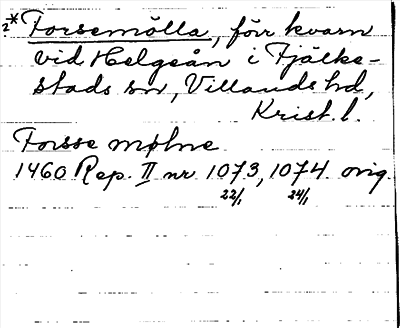 2* Forsemölla, förr kvarn
vid Helgeån i Fjälke-
stads sn, Villands hd,
Krist. l.
Forsse mølne
1460 Rep. II nr 1073, 1074 orig.
22/1 24/1